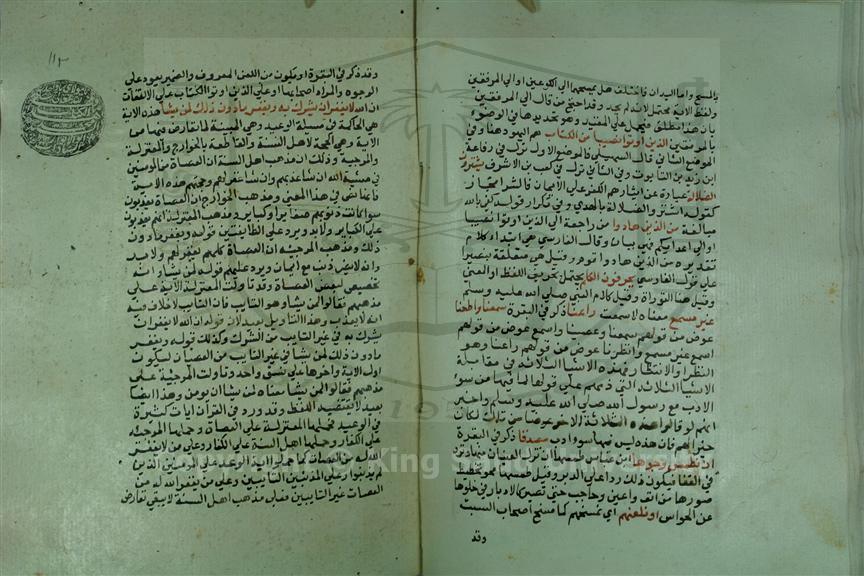 بالمسح واما اليدان فاختلف هل يمسحهما الى الكوعين او الى المرفقين
ولفظ الاية محتمل لانه لم يحد وقد احتج من قال الى المرفقين
بان هذا مطلق فيحمل على المقيد وهو تحديدها في الوضوء
بالمرفقين الذين اوتوا نصيبا من الكتاب هم اليهود هنا وفي
الموضع الثاني قال السهيلي فالموضع الاول نزل في رفاعة
ابن زيد بن التابوت وفي الثاني نزل في كعب بن الاشرف يشترون
الضلالة عبارة عن ايثارهم الكفر على الايمان فالشرا مجاز
كقوله اشتروا الضلالة بالهدى وفي تكرار قوله كفى بالله
مبالغة من الذين هادوا من راجعة الى الذين اوتوا نصيبا
او الى اعدايكم فهي بيان وقال الفارسي هي ابتدا كلام
تقديره من الذين هادوا قوم وقيل هي متعلقة بنصيرا
على قول الفارسي يحرفون الكلم يحتمل تحريف اللفظ او المعنى
وقيل هنا التوراة وقيل كلام النبي صلى الله عليه وسلم
غير مسمع معناه لا سمعت راعنا ذكر في البقرة سمعنا واطعنا
عوض من قولهم سمعنا وعصينا واسمع عوض من قولهم
اسمع غير مسمع وانظرنا عوض من قولهم راعنا وهو
النظر او الانتظار فهذه الاشيا الثلاثة في مقابلة
الاشيا الثلاثة التي ذمهم على قولها لما فيها من سوء
الادب مع رسول الله صلى الله عليه وسلم واخبر
انهم لو قالوا هذه الثلاثة الاخر عوضا من تلك لكان
خيرا لهم فان هذه ليس فيها سوء ادب مصدقا ذكر في البقرة
ان نطمس وجوها ابن عباس طمسها ان تزال العينان منها وترد
في القفا فيكون ذلك ردا على الدبر وقيل طمسها محو تخطيط
صورها من انف وعين وحاجب حتى تصير كالادبار في خلوها
عن الحواس او نلعنهم اي نمسخهم كما مسخ اصحاب السبت
وقد
١١٣
وقد ذكر في البقرة او يكون من اللعن المعروف والضمير يعود على
الوجوه والمراد اصحابها او على الذين اوتوا الكتاب على الالتفات
ان الله لا يغفر ان يشرك به ويغفر ما دون ذلك لمن يشا هذه الاية
هي الحاكمة في مسيلة الوعيد وهي المبينة لما تعارض فيها من
الاية وهي الحجة لاهل السنة والقاطعة بالخوارج والمعتزلة
والمرجية وذلك ان مذهب اهل السنة ان العصاة من المومنين
في مشية الله ان شا عذبهم وان شا غفر لهم وحجتهم هذه الاية
فانها نص في هذا المعنى ومذهب الخوارج ان العصاة يعذبون
سوا كانت ذنوبهم صغاير او كباير ومذهب المعتزلة انهم يعذبون
على الكباير ولا بد ويرد على الطايفتين قوله ويغفر ما دون
ذلك ومذهب المرجيه ان العصاة كلهم يغفر لهم ولا بد
وانه لا يضر ذنب مع ايمان ويرد عليهم قوله لمن يشا وانه
تخصيص لبعض العصاة وقد تاولت المعتزلة الاية على
مذهبهم فقالوا لمن يشا وهو التايب فان التايب لا خلاف فيه
انه لا يعذب وهذا التاويل بعيد لان قوله ان الله لا يغفر ان
يشرك به في غير التايب من الشرك وكذلك قوله ويغفر
ما دون ذلك لمن يشا في غير التايب من العصيان ليكون
اول الاية واخرها على نسق واحد وتاولت المرجية على
مذهبهم فقالوا لمن يشا معناه لمن يشا ان يومن وهذا ايضا
بعيد لا يقتضيه اللفظ وقد ورد في القرآن ايات كثيرة
في الوعيد فحملها المعتزلة على العصاة وحملها المرجيه
على الكفار وحملها اهل السنة على الكفار وعلى من لا يغفر
الله له من العصاة كما حملوا اية الوعد على المومنين الذين
لم يذنبوا وعلى المذنبين التايبين وعلى من يغفر الله له من
العصاة غير التايبين فعلى مذهب اهل السنة لا يبقى تعارض
Copyright © King Saud University
1957